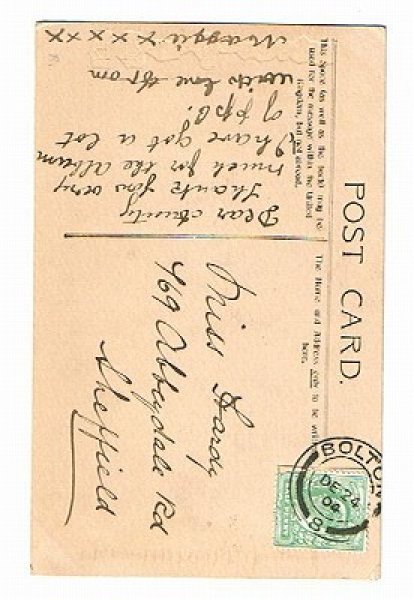 POST CARD.
This Space (as well as the back) may be
used for the message within the United
Kingdom, but not abroad.
The Name and Address only to be
here.
Dear Aunty
Thank you very
much for the album
I have got a lot
of ppc!
with love from
Maggie x x x x x
Miss Hardy
469 Abbeydale Rd
Sheffield
BOLTON
DE 24
04
8